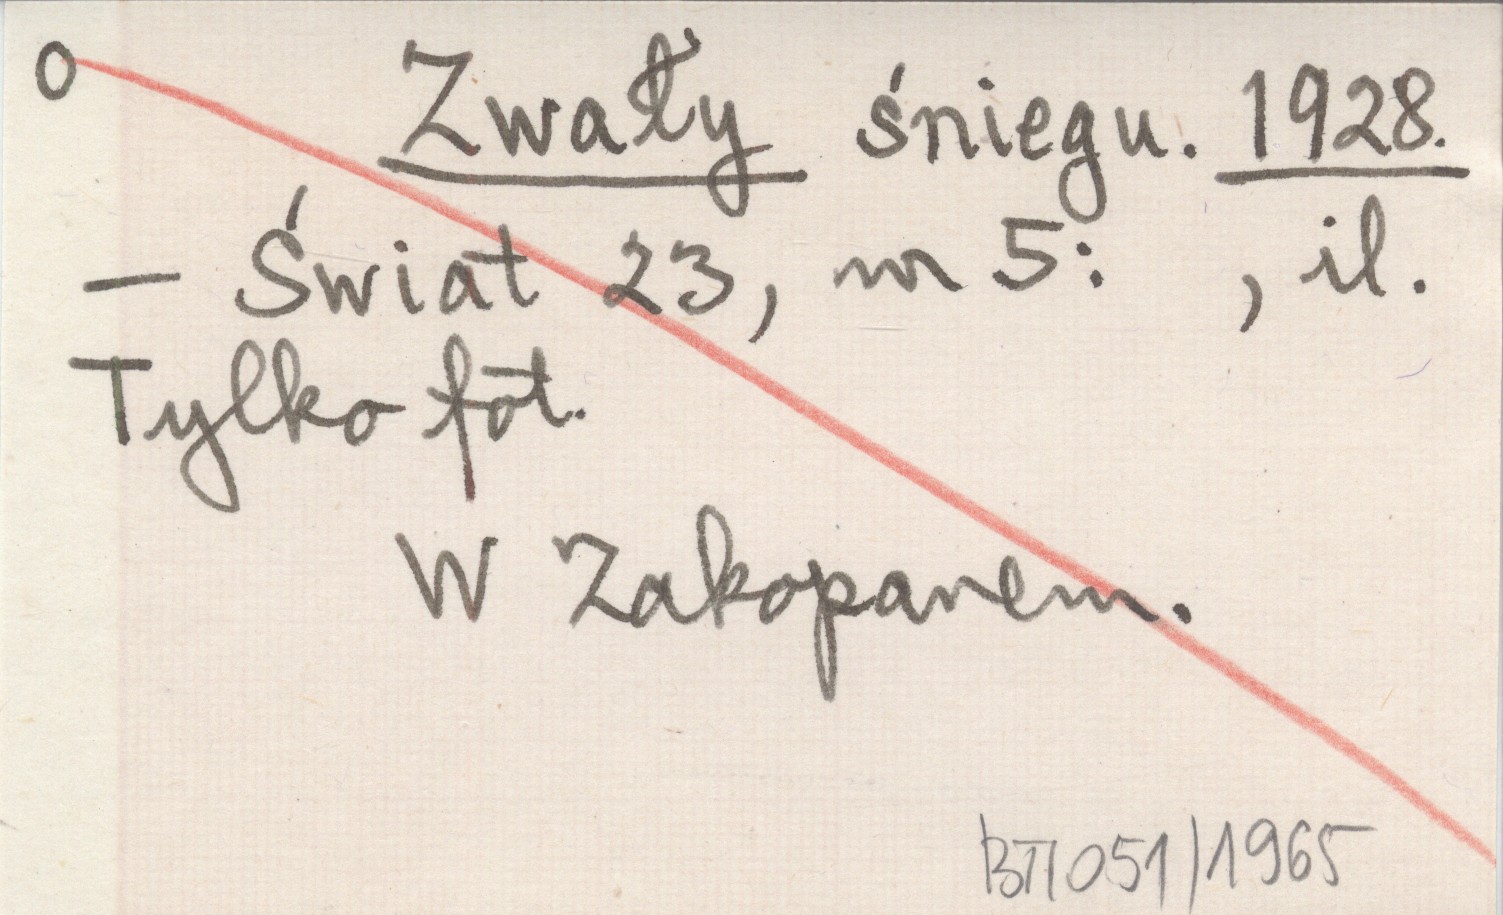 O Zwały śniegu. 1928.
— Świat 23, nr 5: , il.
Tylko fot.
W Zakopanem.
BTI 051/1965